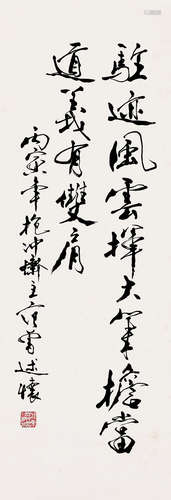 駐迹風雲揮大筆擔當
道義有雙肩
丙寅年抱冲齋主范曾述懷